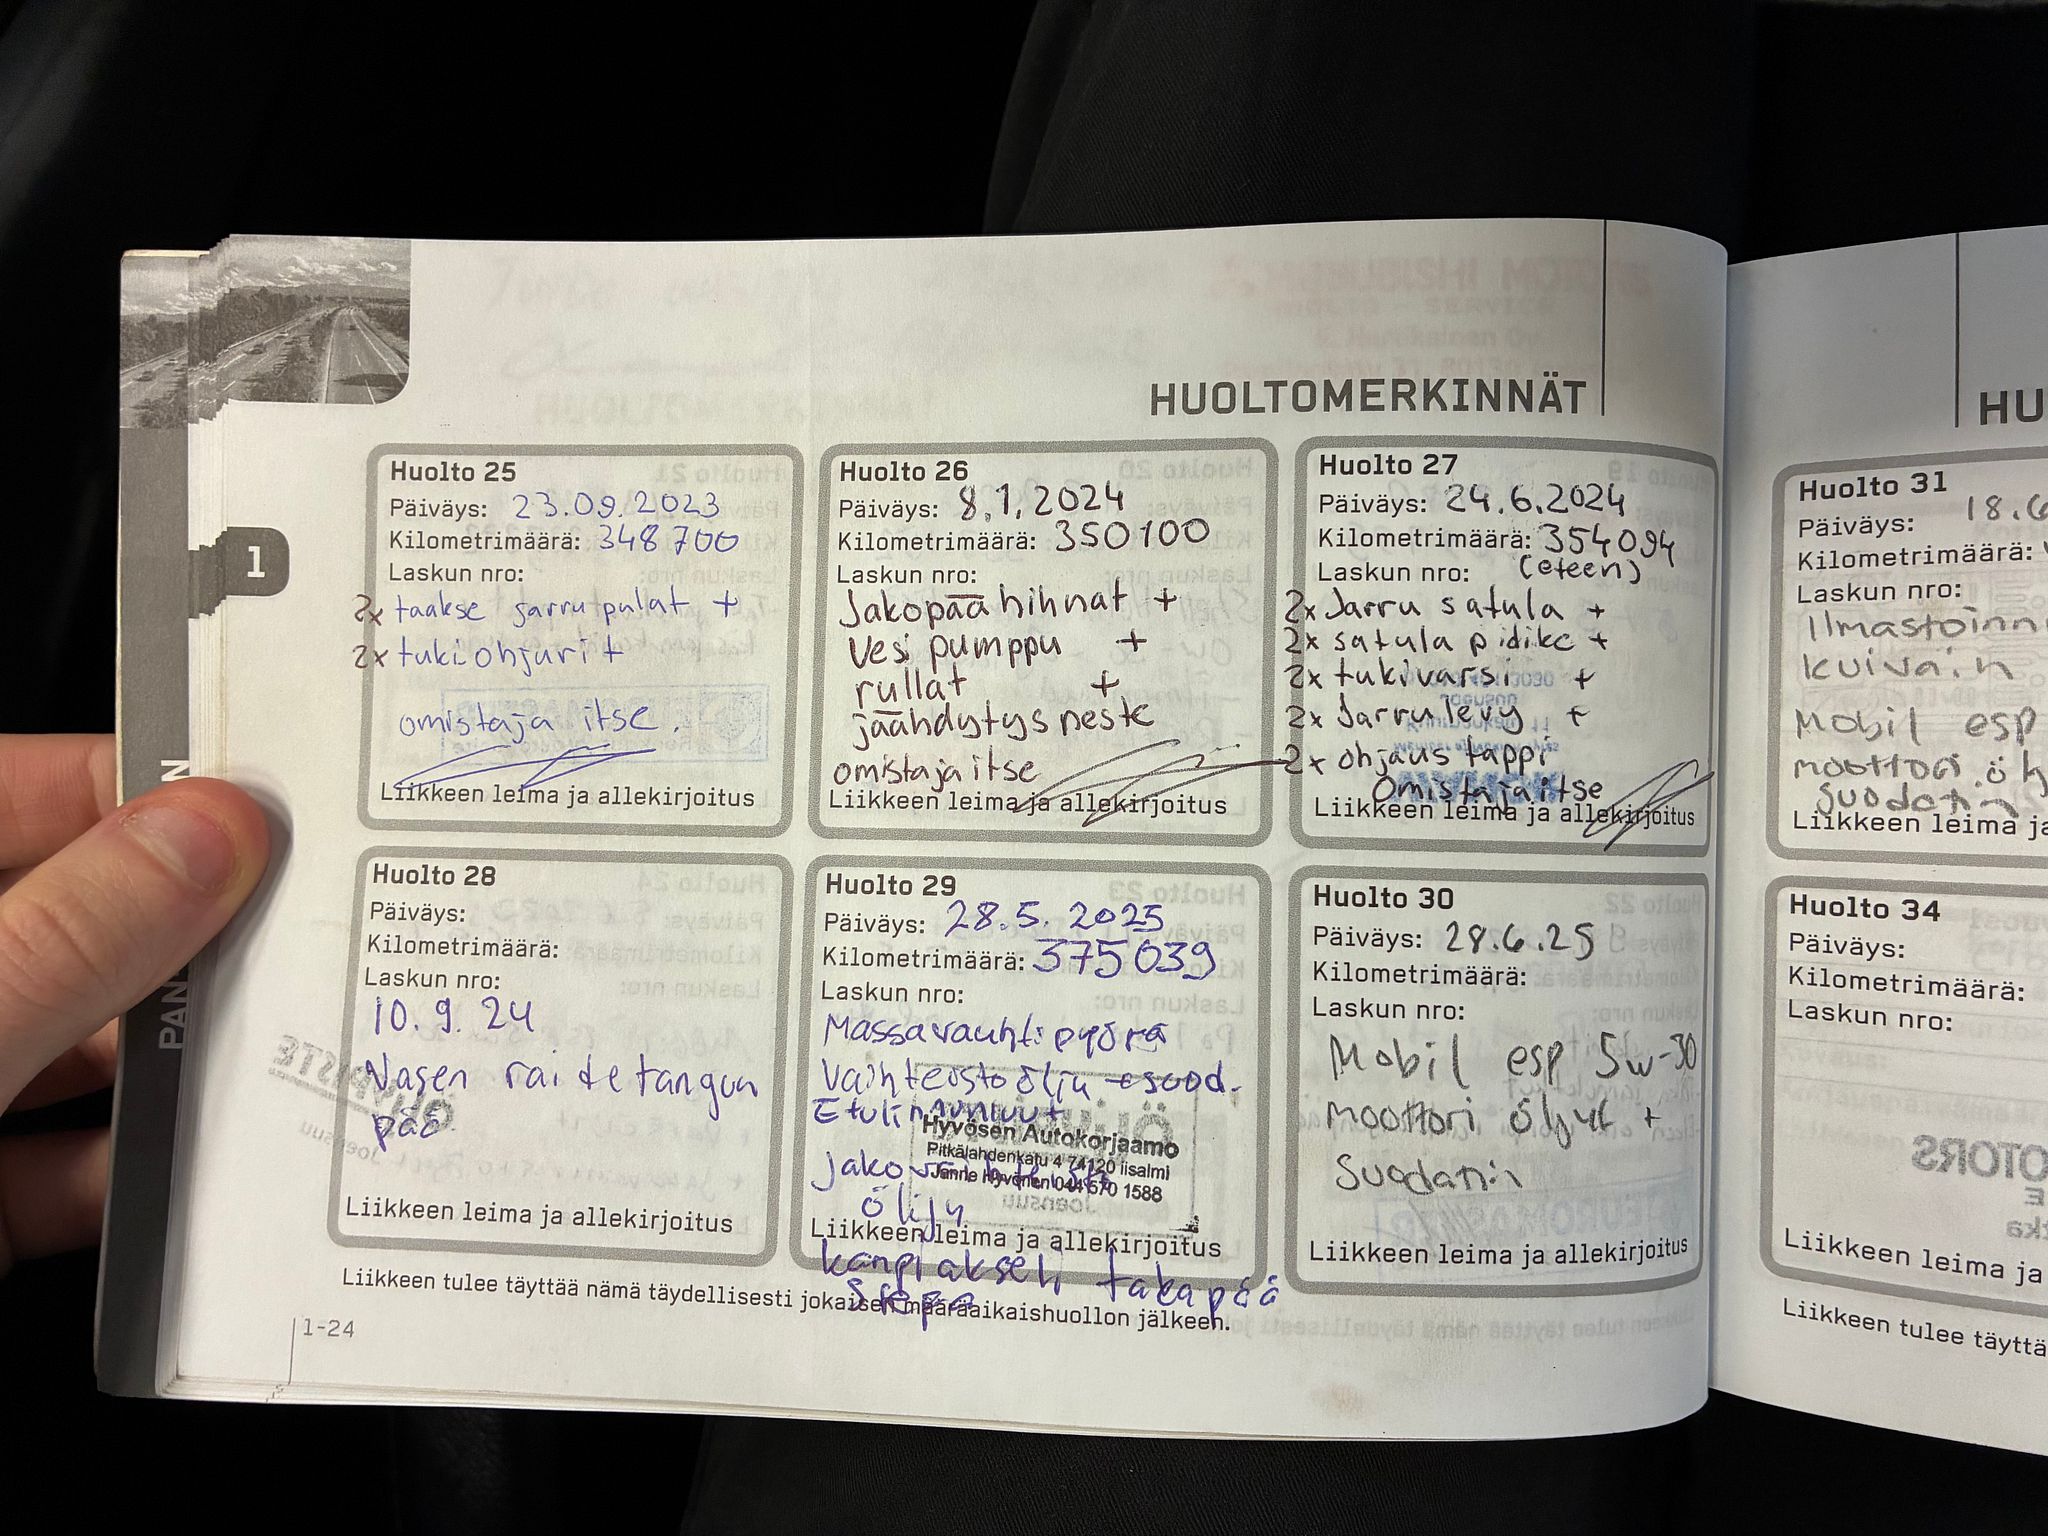 HUOLTOMERKINNÄT
Huolto 25
Päiväys: 23.09.2023
Kilometrimäärä: 348700
Laskun nro:
2x taakse jarrupalat +
2x tukiohjurit
omistaja itse.
Liikkeen leima ja allekirjoitus
Huolto 26
Päiväys: 8.1.2024
Kilometrimäärä: 350100
Laskun nro:
Jakopää hihnat +
Vesi pumppu +
rullat +
jäähdytys neste
omistaja itse
Liikkeen leima ja allekirjoitus
Huolto 27
Päiväys: 24.6.2024
Kilometrimäärä: 354094
Laskun nro: (eteen)
2x Jarru satula +
2x satula pidike +
2x tukivarsi +
2x Jarrulevy +
2x ohjaus tappi
Omistaja itse
Liikkeen leima ja allekirjoitus
Huolto 28
Päiväys:
Kilometrimäärä:
Laskun nro:
10.9.24
Vasen raidetangon
pää
Liikkeen leima ja allekirjoitus
Huolto 29
Päiväys: 28.5.2025
Kilometrimäärä: 375039
Laskun nro:
Massavauhtipyörä
Vaihteisto öljy + suod.
Hyvösen Autokorjaamo
Pitkälahdenkatu 4 74120 iisalmi
Janne Hyvönen 044 570 1588
öljy
Liikkeen leima ja allekirjoitus
kanpiakseli takapää
Huolto 30
Päiväys: 28.6.25
Kilometrimäärä:
Laskun nro:
Mobil esp 5w-30
moottori öljyt +
Suodatin
Liikkeen leima ja allekirjoitus
Liikkeen tulee täyttää nämä täydellisesti jokaisen määräaikaishuollon jälkeen.
1-24
1
HU
Huolto 31
Päiväys: 18.6
Kilometrimäärä:
Laskun nro:
Ilmastoinn
kuivain
Mobil esp
moottori ö
suodatin
Liikkeen leima ja
Huolto 34
Päiväys:
Kilometrimäärä:
Laskun nro:
Liikkeen leima ja
Liikkeen tulee täyttä